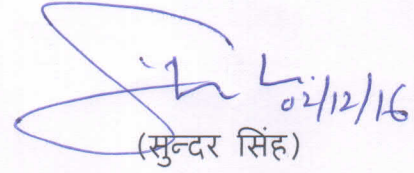 02/12/16
(सुन्दर सिंह)